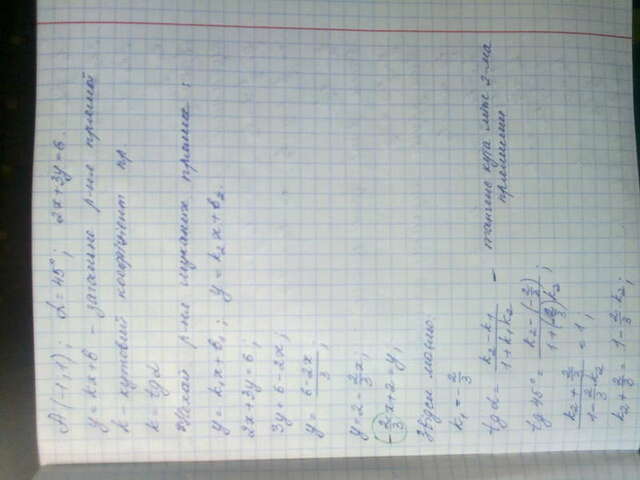 A (-1; 1); α = 45°; 2x+3y=6.
y = kx+b – загальне р-ня прямої
k – кутовий коефіцієнт пр.
k = tg α
Нехай р-ня шуканих прямих :
y = k₁x+b₁; y = k₂x+b₂.
2x+3y=6;
3y=6-2x;
y = (6-2x)/3;
y = 2-2/3x;
-2/3x+2=y;
Звідси маємо:
k₁ = -2/3
tg α = (k₂-k₁)/(1+k₁k₂) – тангенс кута між 2-ма
прямими
tg 45° = (k₂-(-2/3))/(1+(-2/3)k₂);
(k₂+2/3)/(1-2/3k₂) = 1;
k₂+2/3 = 1-2/3k₂;